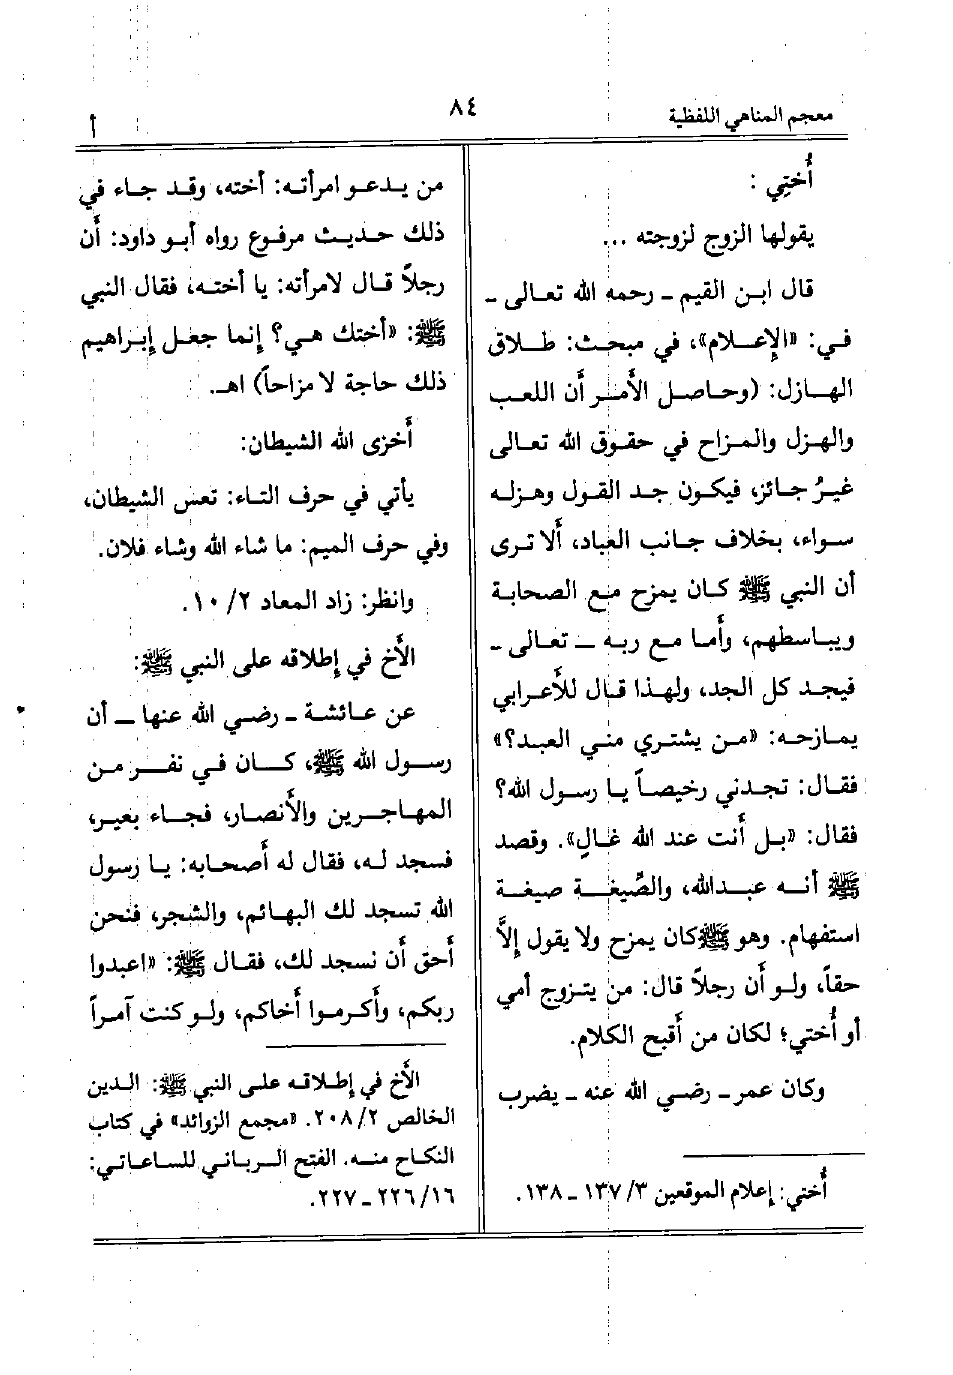 معجم المناهي اللفظية
٨٤
أ
أُختِي :
يقولها الزوج لزوجته ...
قال ابن القيم ـ رحمه الله تعالى ـ
في: «الإعلام»، في مبحث: طلاق
الهازل: (وحاصل الأمر أن اللعب
والهزل والمزاح في حقوق الله تعالى
غيرُ جائز، فيكون جد القول وهزله
سواء، بخلاف جانب العباد، ألا ترى
أن النبي ﷺ كان يمزح مع الصحابة
ويباسطهم، وأما مع ربه ـ تعالى ـ
فيجد كل الجد، ولهذا قال للأعرابي
يمازحه: «من يشتري مني العبد؟»
فقال: تجدني رخيصاً يا رسول الله؟
فقال: «بل أنت عند الله غالٍ». وقصد
ﷺ أنه عبدالله، والصِّيغة صيغة
استفهام. وهو ﷺ كان يمزح ولا يقول إلَّا
حقاً، ولو أن رجلاً قال: من يتزوج أمي
أو أُختي؛ لكان من أقبح الكلام.
وكان عمر ـ رضي الله عنه ـ يضرب
أُختي: إعلام الموقعين ٣/ ١٣٧ ـ ١٣٨.
من يدعو امرأته: أخته، وقد جاء في
ذلك حديث مرفوع رواه أبو داود: أن
رجلاً قال لامرأته: يا أخته، فقال النبي
ﷺ: «أختك هي؟ إنما جعل إبراهيم
ذلك حاجة لا مزاحاً) اهـ.
أخزى الله الشيطان:
يأتي في حرف التاء: تعس الشيطان،
وفي حرف الميم: ما شاء الله وشاء فلان.
وانظر: زاد المعاد ٢/ ١٠.
الأخ في إطلاقه على النبي ﷺ:
عن عائشة ـ رضي الله عنها ـ أن
رسول الله ﷺ، كان في نفر من
المهاجرين والأنصار، فجاء بعير،
فسجد له، فقال له أصحابه: يا رسول
الله تسجد لك البهائم، والشجر، فنحن
أحق أن نسجد لك، فقال ﷺ: «اعبدوا
ربكم، وأكرموا أخاكم، ولو كنت آمراً
الأخ في إطلاقه على النبي ﷺ: الدين
الخالص ٢/ ٢٠٨. «مجمع الزوائد» في كتاب
النكاح منه. الفتح الرباني للساعاتي:
١٦/ ٢٢٦ ـ ٢٢٧.